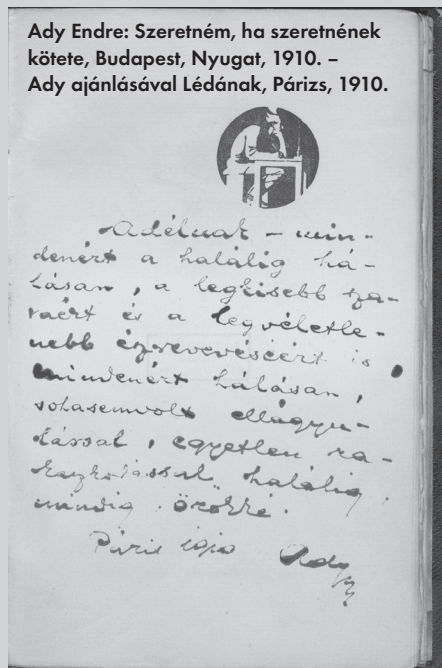 Ady Endre: Szeretném, ha szeretnének
kötete, Budapest, Nyugat, 1910. –
Ady ajánlásával Lédának, Párizs, 1910.
Adélnak – min-
denért a halálig há-
lásan, a legkisebb sza-
váért és a legvéletle-
nebb észrevevéséért is
mindenért hálásan,
sohasemvolt ellágyu-
lással, egyetlen ra-
gaszkodással halálig.
mindig. örökké.
Páris 1910 Ady